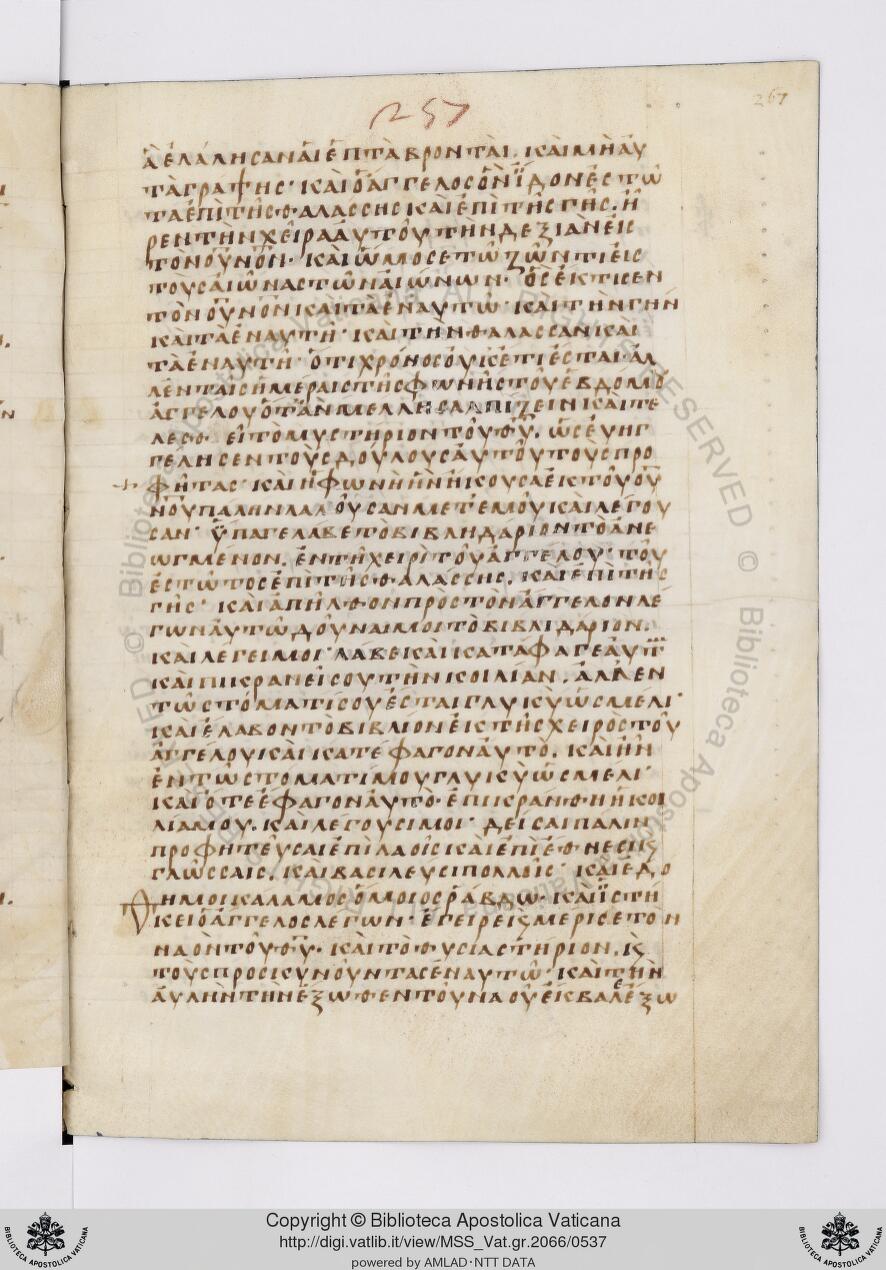 257
267
ἃ ἐλάλησαν ἁι ἑπτὰ βρονταί. κὰι μὴ ἀυ
τὰ γράψης· κὰι ὁ ἄγγελος ὃν ἴδον ἑστῶ
τα ἐπὶ τῆς θαλάσσης κὰι ἐπὶ τῆς γῆς. ἦ
ρεν τὴν χεῖρα ἀυτοῦ τὴν δεξιὰν εἰς
τὸν οὐνον· κὰι ὤμοσε τῶ ζῶντι εἰς
τοὺς ἀιῶνας τῶν ἀιώνων· ὃς ἔκτισεν
τὸν οὐνον κὰι τὰ ἐν αυτῶ· κὰι τὴν γῆν
κὰι τὰ ἐν αυτῆ· κὰι τὴν θάλασσαν κὰι
τὰ ἐν αυτῆ· ὅτι χρόνος ὀυκέτι ἔσται· ἀλ
λ ἐν ταῖς ἡμέραις τῆς φωνῆς τοῦ ἑβδόμου
ἀγγέλου ὅταν μέλλη σαλπίζειν κὰι τε
λεσθεῖ τὸ μυστήριον τοῦ θυ. ὡς ἐυηγ
γέλησεν τοὺς δούλους ἀυτοῦ τοὺς προ
φήτας· κὰι ἡ φωνὴ ἣν ἤκουσα ἐκ τοῦ οὐ
νοῦ πάλιν λαλοῦσαν μετ ἐμοῦ κὰι λέγου
σαν· ὕπαγε λάβε τὸ βιβληδάριον τὸ ἀνε
ωγμένον. ἐν τῆ χειρὶ τοῦ ἀγγέλου· τοῦ
ἑστῶτος ἐπὶ τῆς θαλάσσης. κὰι ἐπὶ τῆς
γῆς· κὰι ἀπῆλθον πρὸς τὸν ἄγγελον λέ
γων ἀυτῶ δοῦναι μοι τὸ βιβλιδάριον.
κὰι λέγει μοι· λάβε κὰι κατάφαγε ἀυτ
κὰι πικρανεῖ σου τὴν κοιλίαν. ἀλλ ἐν
τῶ στόματί σου ἔσται γλυκὺ ὡς μέλι·
κὰι ἔλαβον τὸ βιβλίον ἐκ τῆς χειρὸς τοῦ
ἀγγέλου κὰι κατέφαγον ἀυτό. κὰι ἦν
ἐν τῶ στόματί μου γλυκὺ ὡς μέλι·
κὰι ὅτε ἔφαγον ἀυτό· ἐπικράνθη ἡ κοι
λία μου. κὰι λέγουσί μοι· δεῖ σαι πάλιν
προφητεῦσαι ἐπὶ λαοῖς κὰι ἐπὶ ἔθνεσι ϗ
γλώσσαις. κὰι βασιλεῦσι πολλοῖς· κὰι ἐδό
θη μοι κάλαμος ὅμοιος ῥάβδω· κὰι ἱστή
κει ὁ ἄγγελος λέγων· ἔγειρε ϗ μέρισε τὸν
ναὸν τοῦ θυ· κὰι τὸ θυσιαστήριον. ϗ
τοὺς προσκυνοῦντας ἐν αυτῶ· κὰι τὴν
ἀυλὴν τὴν ἔξωθεν τοῦ ναοῦ ἔκβαλε ἔξω
Copyright © Biblioteca Apostolica Vaticana
http://digi.vatlib.it/view/MSS_Vat.gr.2066/0537
powered by AMLAD·NTT DATA